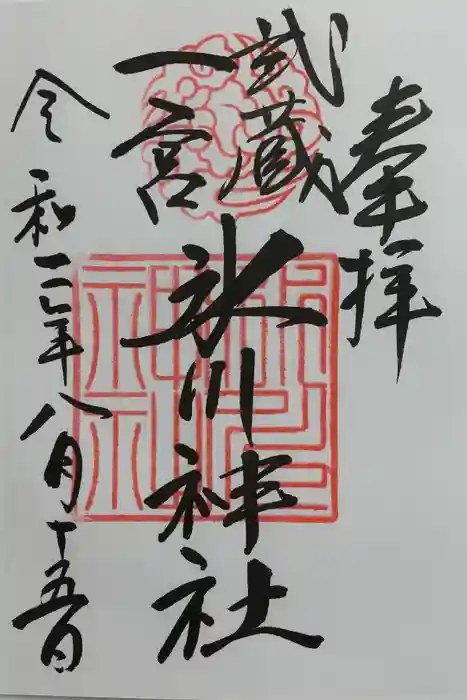 奉拝
武蔵
一宮
氷川神社
令和二年八月十五日